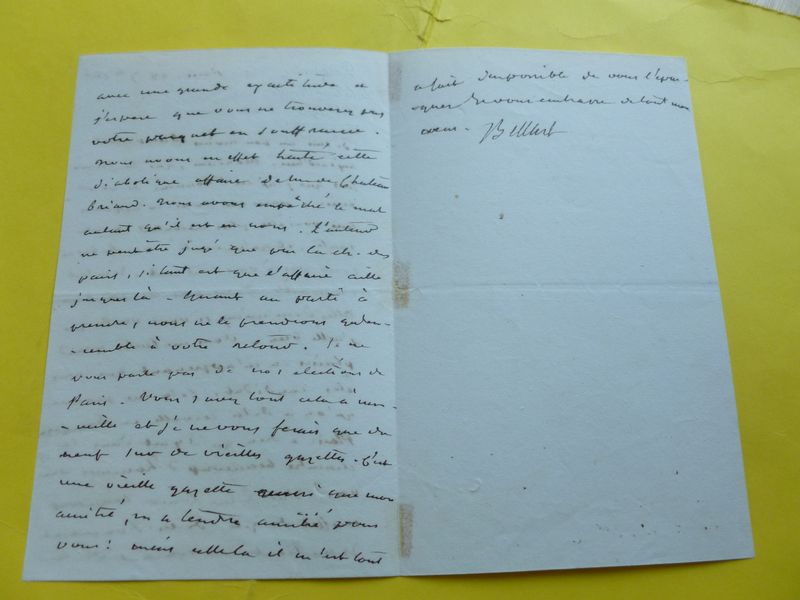 avec une grande exactitude et
j'espere que vous ne trouverez pas
votre parquet en souffrance.
nous avons en effet hate cette
diabolique affaire de Chateau
briand. Nous avons empêché le mal
autant qu'il est en nous. L'auteur
ne peut être jugé que par la ch. des
pairs, si tant est que l'affaire aille
jusques là - Quant au parti à
prendre, nous ne le prendrons qu'en-
-semble à votre retour. Je ne
vous parle pas de nos élections de
Paris. Vous savez tout cela à mer-
-veille et je ne vous ferais que du
neuf sur de vieilles gazettes. C'est
une vieille gazette aussi que mon
amitié, ma tendre amitié pour
vous: mais celle là il m'est tout
a fait impossible de vous l'
quer Je vous embrasse de tout mon
coeur. Bellart